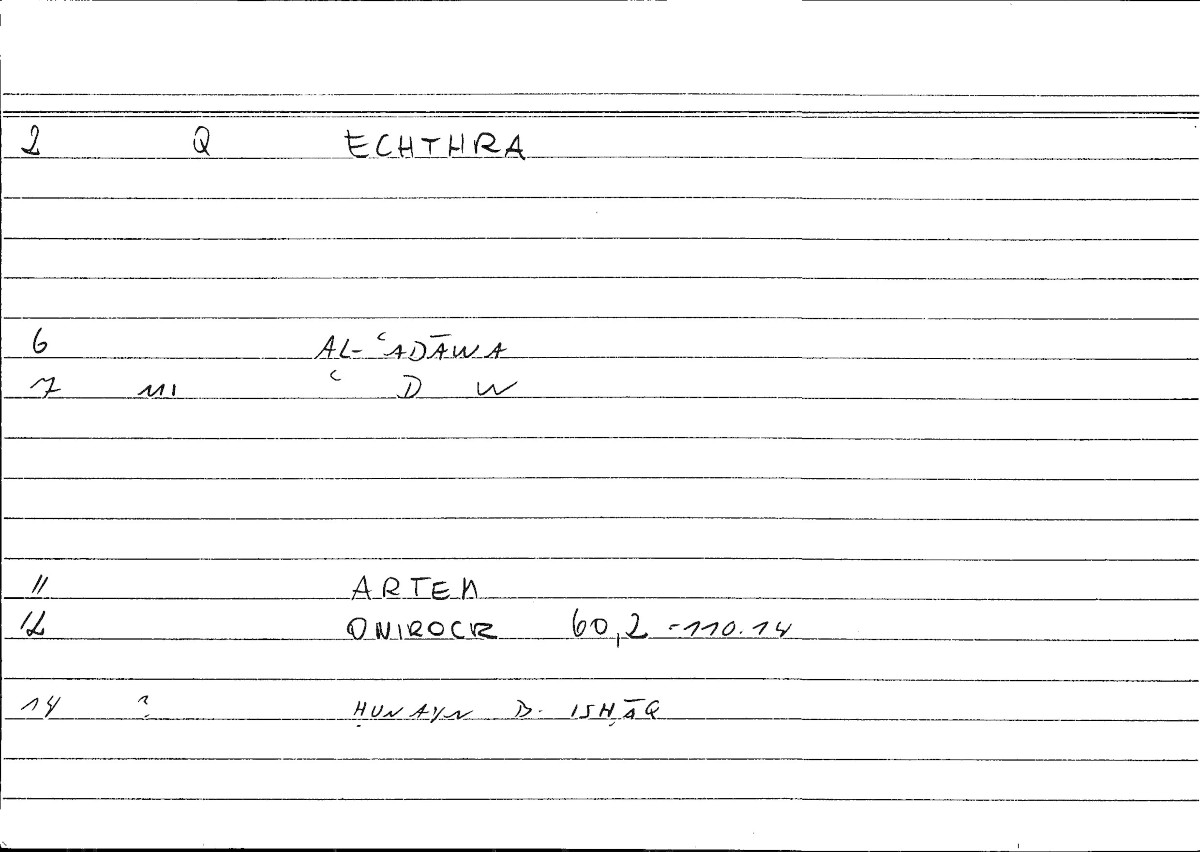 2 Q ECHTHRA
6 AL-ʿADĀWA
7 M1 ʿ D W
11 ARTEM
12 ONIROCR 60,2 =110.14
14 ? ḤUNAYN B. ISḤĀQ